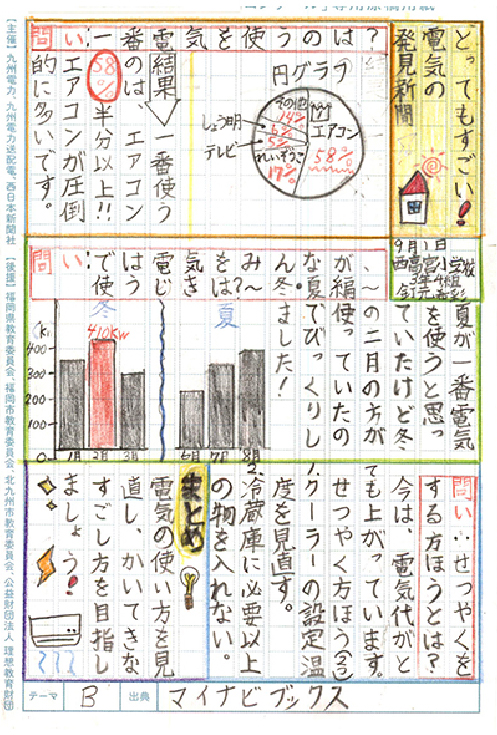 とってもすごい!
電気の
発見新聞
問い:一番電気を使うのは?
円グラフ
エアコン
58%
れいぞうこ
17%
テレビ
5%
しょう明
6%
その他
14%
結果
一番使う
のは、エアコン
58%半分以上!!
エアコンが圧倒
的に多いです。
夏が一番電気
を使うと思っ
ていたけど冬、
の二月の方が
使っていたの
でびっくりし
ました!
問い:
使うじきは?
夏
冬
410kw
400
300
200
100
0
1月
2月
3月
6月
7月
8月
問い:せつやくを
する方ほうとは?
今は、電気代がと
ても上がっています。
せつやく方ほう(2つ)
1.クーラーの設定温
度を見直す。
2.冷蔵庫に必要以上
の物を入れない。
まとめ
電気の使い方を見
直し、かいてきな
すごし方を目指し
ましょう!
テーマ B 出典 マイナビブックス
【主催】九州電力、九州電力送配電、西日本新聞社
【後援】福岡県教育委員会、福岡市教育委員会、北九州市教育委員会、公益財団法人 理想教育財団